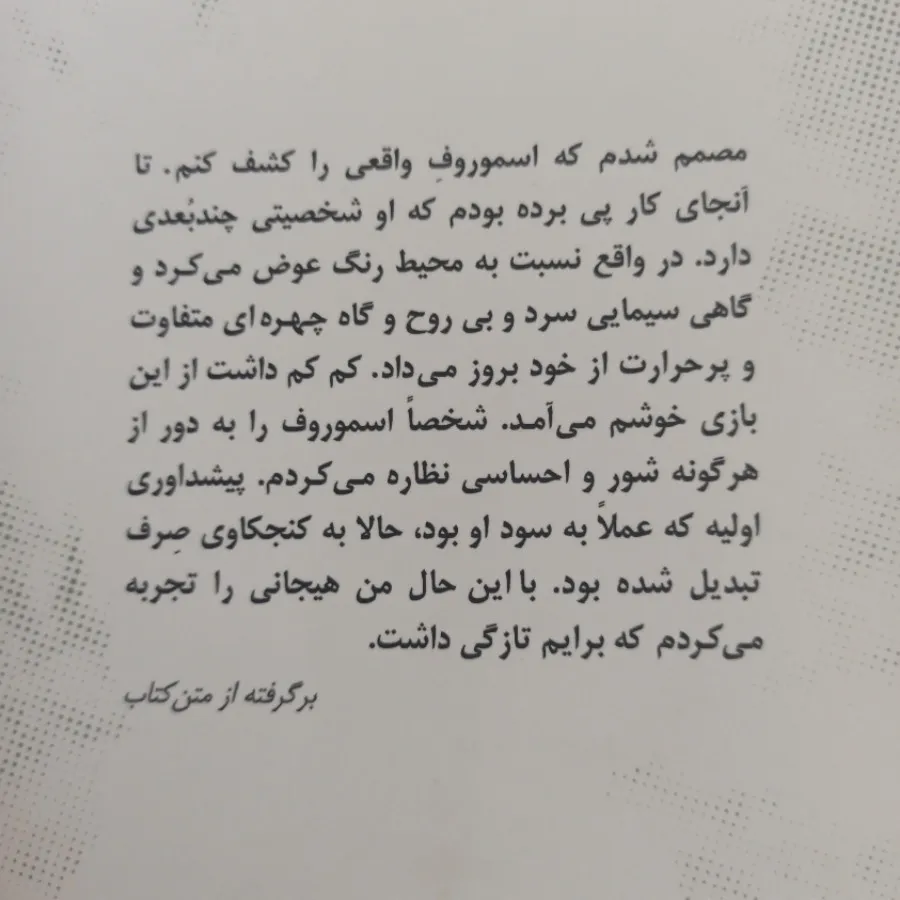 مصمم شدم که اسموروفِ واقعی را کشف کنم. تا
آنجای کار پی برده بودم که او شخصیتی چندبُعدی
دارد. در واقع نسبت به محیط رنگ عوض می‌کرد و
گاهی سیمایی سرد و بی روح و گاه چهره‌ای متفاوت
و پرحرارت از خود بروز می‌داد. کم کم داشت از این
بازی خوشم می‌آمد. شخصاً اسموروف را به دور از
هرگونه شور و احساسی نظاره می‌کردم. پیشداوری
اولیه که عملاً به سود او بود، حالا به کنجکاوی صِرف
تبدیل شده بود. با این حال من هیجانی را تجربه
می‌کردم که برایم تازگی داشت.
برگرفته از متن کتاب